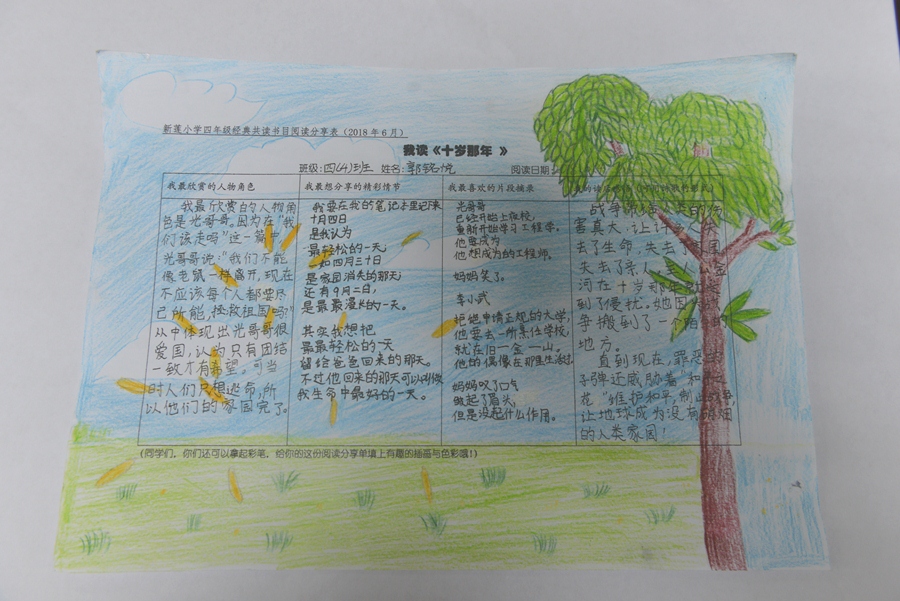 新莲小学四年级经典共读书目阅读分享表（2018年6月）
我读《十岁那年 》
班级:四(4)班 姓名:郭铭悦 阅读日期:
我最欣赏的人物角色
我最欣赏的人物角
色是光哥哥。因为在“我
们该走吗”这一篇中
光哥哥说:“我们不能
像老鼠一样离开,现在
不应该每个人都要尽
己所能,拯救祖国吗”
从中体现出光哥哥很
爱国,认为只有团结
一致才有希望。可当
时人们只想逃命,所
以他们的家园完了。
我最想分享的精彩情节
我要在我的笔记本里记下来
十月四日
是我认为
最轻松的一天,
一如四月三十日
是家园消失的那天;
还有9月二日,
是最最漫长的一天。
其实我想把
最最轻松的一天
留给爸爸回来的那天。
不过他回来的那天可以叫做
我生命中最好的一天。
我最喜欢的片段摘录
光哥哥
已经开始上夜校,
重新开始学习工程学,
他要成为
他想成为的工程师。
妈妈笑了。
李小武
拒绝申请正规的大学,
他要去一所烹饪学校,
就在旧金山。
他的偶像在那里生活过。
妈妈叹了口气
皱起了眉头,
但是没起什么作用。
战争
害真大,让许多人失
去了生命,失去了家园
失去了亲人,
河在十岁那年
到了侵扰。她因
争搬到了一个陌生的
地方。
直到现在,罪恶的
子弹还威胁着“和平之
花”维护和平,制止战争
让地球成为没有硝烟
的人类家园!
(同学们，你们还可以拿起彩笔，给你的这份阅读分享单填上有趣的插画与色彩哦!)